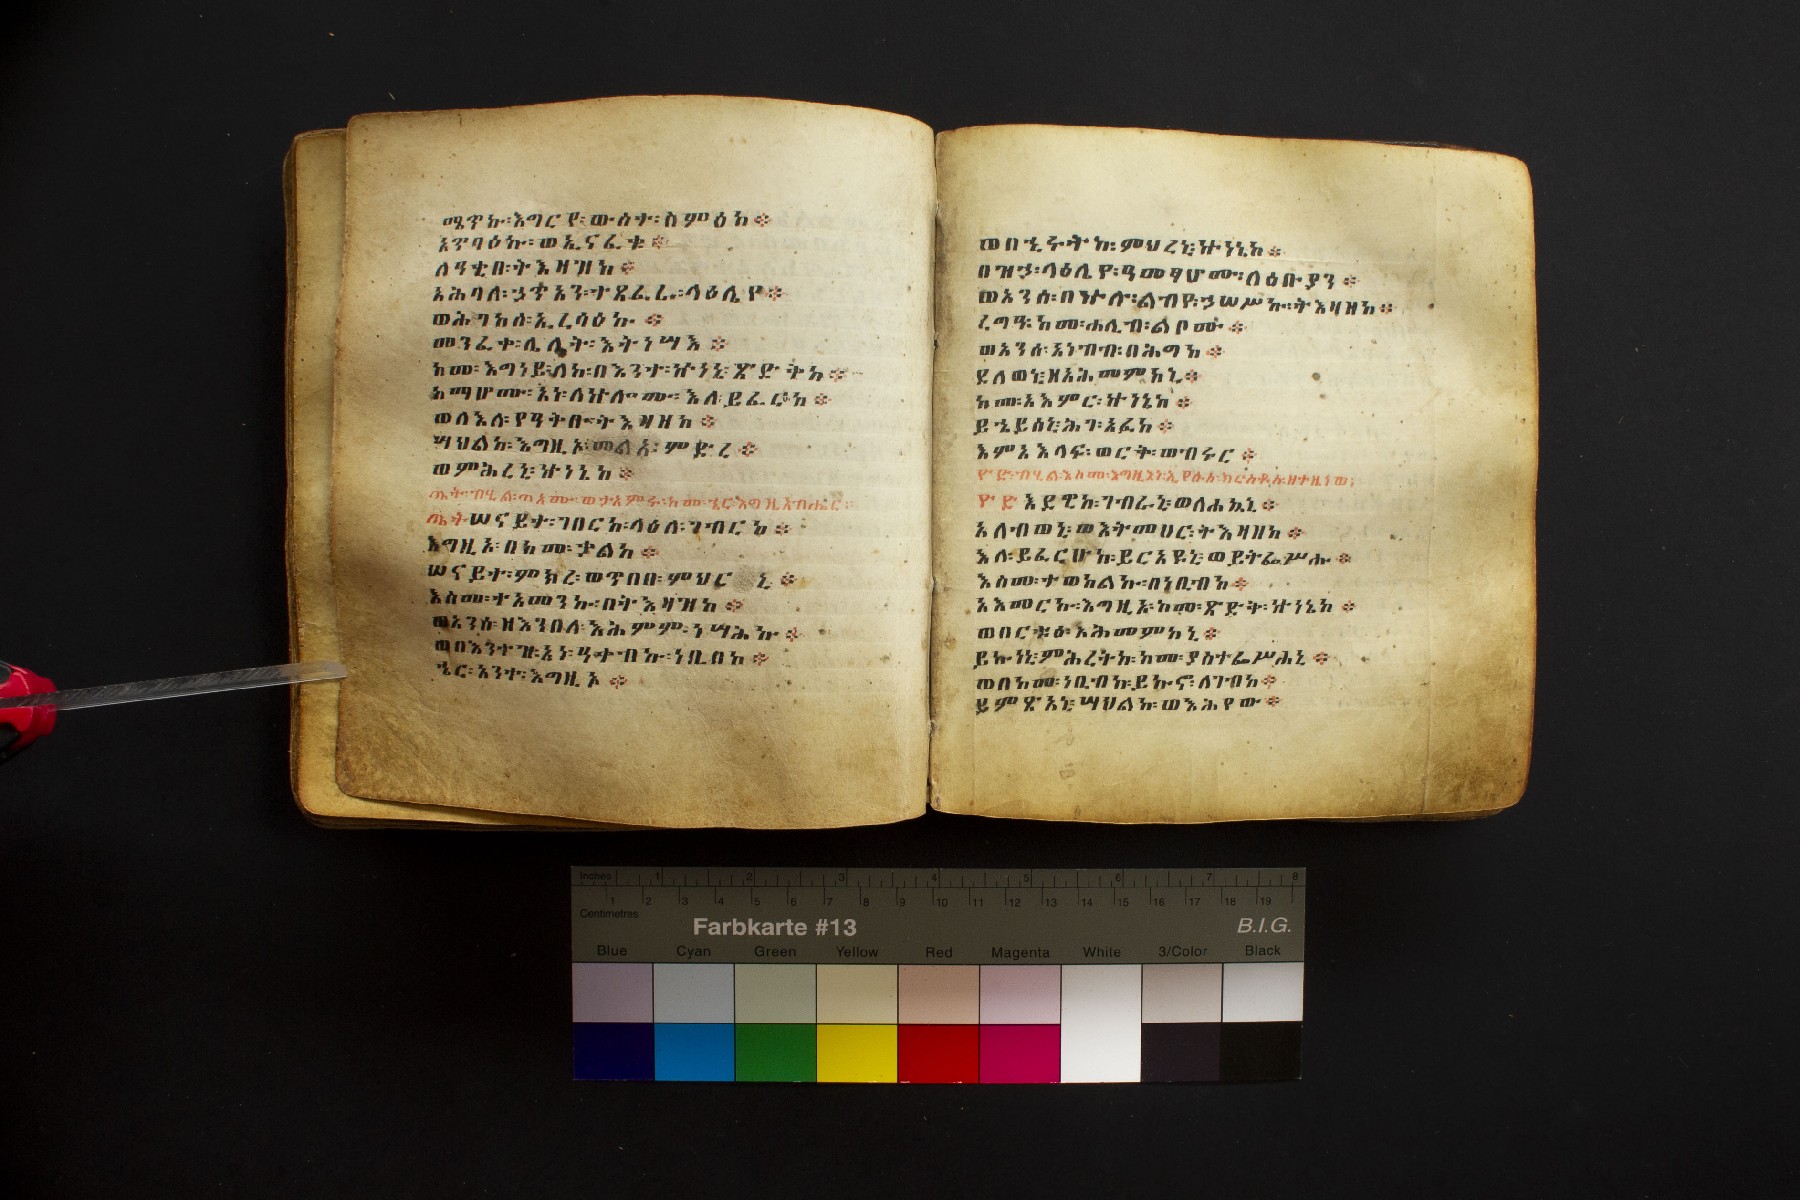 ሜጥኩ፡እግርየ፡ውስተ፡ስምዕከ።
አጥባዕኩ፡ወኢናፈቁ።
ለዓቂበ፡ትእዛዝከ።
አሕባለ፡ኃጥአን፡ተደፈሩ፡ላዕሌየ።
ወሕገከሰ፡ኢረሳዕኩ።
መንፈቀ፡ሌሊት፡እትነሣእ።
ከመ፡እግነይ፡ለከ፡በእንተ፡ኵነኔ፡ጽድቅከ።
አማሆሙ፡አነ፡ለኵሎሙ፡እለ፡ይፈርሁከ።
ወለእለ፡የዓቅቡ፡ትእዛዘከ።
ሣህልከ፡እግዚኦ፡መልአ፡ምድረ።
ወምሕረኒ፡ኵነኔከ።
ጤት፡ብሂል፡
ጤት፡ሠናይተ፡ገበርከ፡ላዕለ፡ገብርከ።
እግዚኦ፡በከመ፡ቃልከ።
ሠናይተ፡ምክረ፡ወጥበበ፡ምህርኒ።
እስመ፡ተአመንኩ፡በትእዛዝከ።
ወአንሰ፡ዘእንበለ፡እሕምም፡ነሣሕኩ።
ወበእንተዝ፡አነ፡ዓቀብኩ፡ነቢበከ።
ኄር፡አንተ፡እግዚኦ።
ወበኂሩትከ፡ምህረኒ፡ኵነኔከ።
በዝኃ፡ላዕሌየ፡ዓመፃሆሙ፡ለዕቡያን።
ወአንሰ፡በኵሉ፡ልብየ፡ኃሠሥኩ፡ትእዛዘከ።
ረግዓ፡ከመ፡ሐሊብ፡ልቦሙ።
ወአንሰ፡አነብብ፡በሕግከ።
ደለወኒ፡ዘአሕመምከኒ።
ከመ፡አእምር፡ኵነኔከ።
ይኄይሰኒ፡ሕገ፡አፈከ።
እምአእላፍ፡ወርቅ፡ወብሩር።
ዮድ፡ብሂል፡
ዮድ፡እደዊከ፡ገብራኒ፡ወለሐኳኒ።
አለብወኒ፡ወእትመሀር፡ትእዛዘከ።
እለ፡ይፈርሁከ፡ይርአዩኒ፡ወይትፌሥሑ።
እስመ፡ተወከልኩ፡በነቢብከ።
አእመርኩ፡እግዚኦ፡ከመ፡ጽድቅ፡ኵነኔከ።
ወበርቱዕ፡አሕመምከኒ።
ይኩነኒ፡ምሕረትከ፡ከመ፡ያስተፌሥሐኒ።
ወበከመ፡ነቢብከ፡ይኩኖ፡ለገብከ።
ይምጽአኒ፡ሣህልከ፡ወእሕየው።
Inches 1 2 3 4 5 6 7 8
1 2 3 4 5 6 7 8 9 10 11 12 13 14 15 16 17 18 19
Centimetres
Farbkarte #13 B.I.G.
Blue Cyan Green Yellow Red Magenta White 3/Color Black